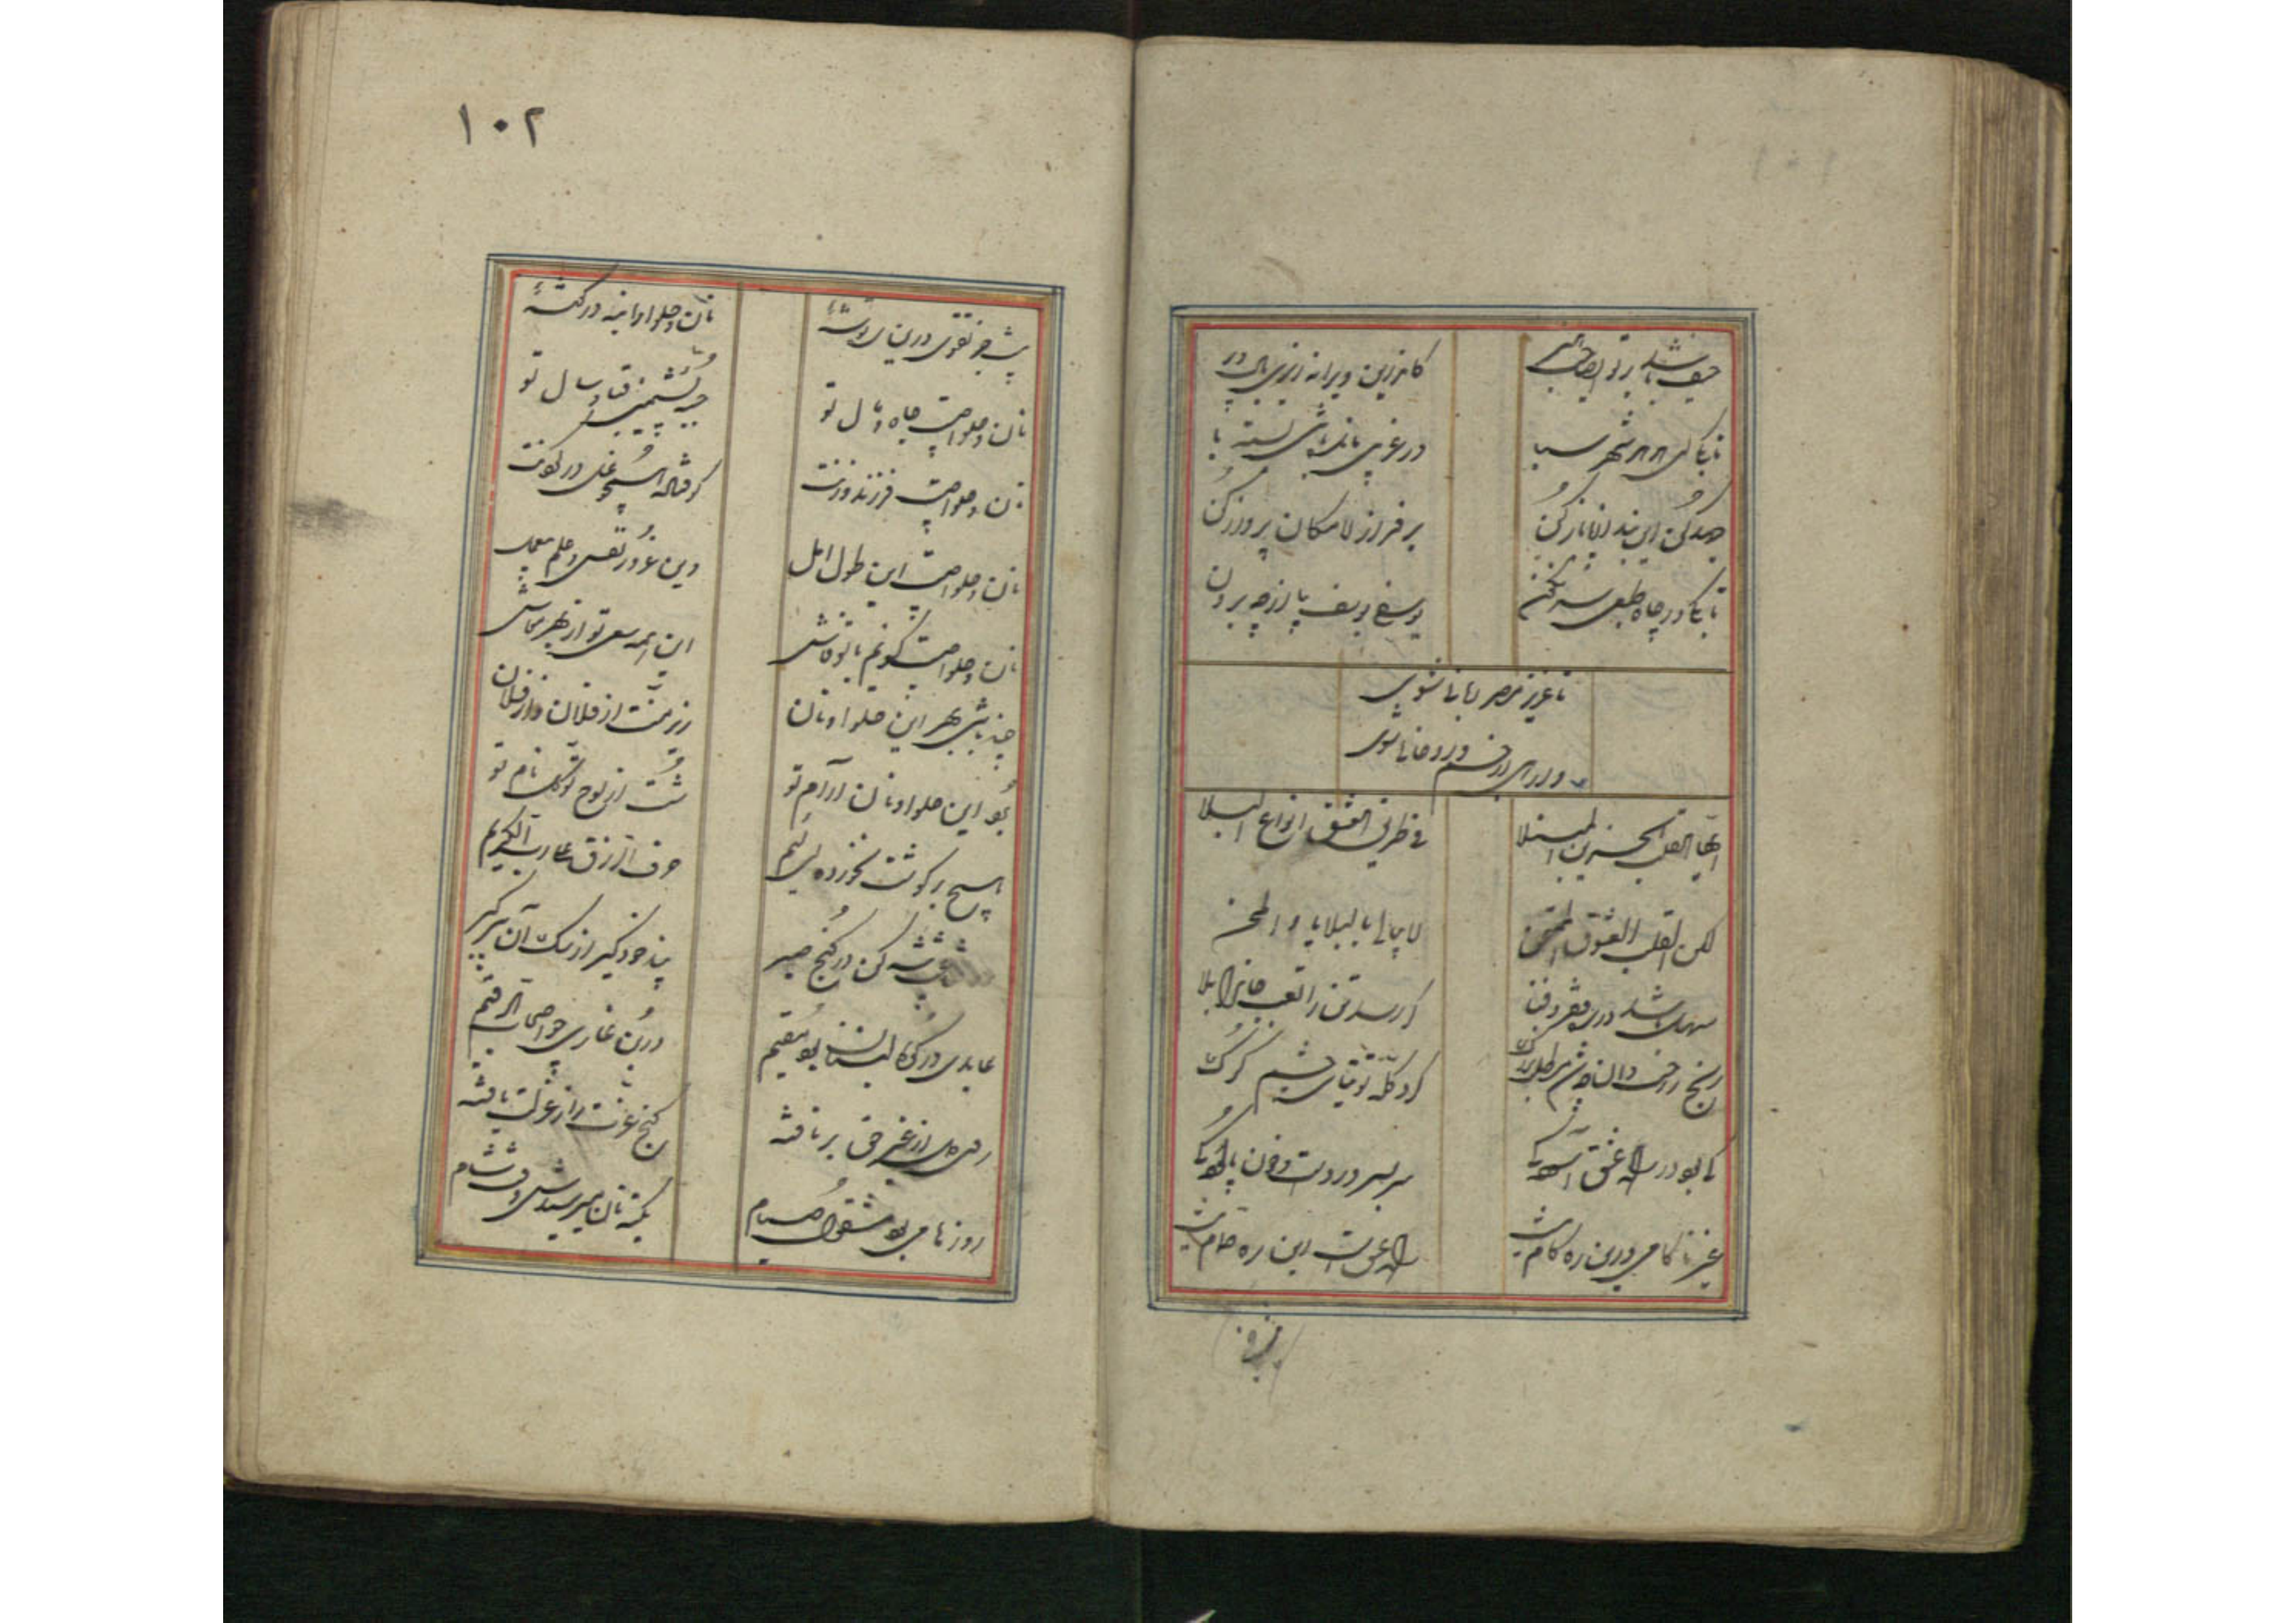 حیف باشد از تو ای صاحب هنر
کاندرین ویرانه ریزی بال و پر
تا بکی ای هدهد شهر سبا
در غریبی مانده باشی بسته پا
جهد کن این بند از پا باز کن
بر فراز لامکان پرواز کن
تا بکی در چاه طبعی سرنگون
یوسفی یوسف بیا از چه برون
تا عزیز مصر ربانی شوی
وارهی از جسم و روحانی شوی
ایها القلب الحزین المبتلا
فی طریق العشق انواع البلا
لکن القلب العشوق الممتحن
لا یبالی بالبلایا و المحن
سهل باشد در ره فقر و فنا
گر رسد تن را تعب جان را بلا
رنج راحت دان چو شد مطلب بزرگ
گرد گله توتیای چشم گرگ
کی بود در راه عشق آسودگی
سر بسر درد است و خون پالودگی
غیر ناکامی درین ره کام نیست
راه عشق است این ره حمام نیست
۱۰۲
نیست جز تقوی درین ره توشهٔ
نان و حلوا را بنه در گوشهٔ
نان و حلوا چیست جاه و مال تو
جبه پشمین قبا و شال تو
نان و حلوا چیست فرزند و زنت
اوفتاده همچو غل در گردنت
نان و حلوا چیست این طول امل
وین غرور نفس و علم بی عمل
نان و حلوا چیست گویم با تو فاش
این همه سعی تو از بهر معاش
چند باشی بهر این حلوا و نان
زیر منت از فلان و از فلان
برد این حلوا و نان آرام تو
شست از لوح توکل نام تو
هیچ بر گوشت نخورده ای لئیم
حرف الرزق علی رب الکریم
پیشه کن در کنج صبر
پند خود گیر از سگ آن پیر گبر
عابدی در کوه لبنان بد مقیم
در بن غاری چو اصحاب الرقیم
روی دل از غیر حق برتافته
گنج عزت را ز عزلت یافته
روزها می بود مشغول صیام
یک ته نان میرسیدش وقت شام